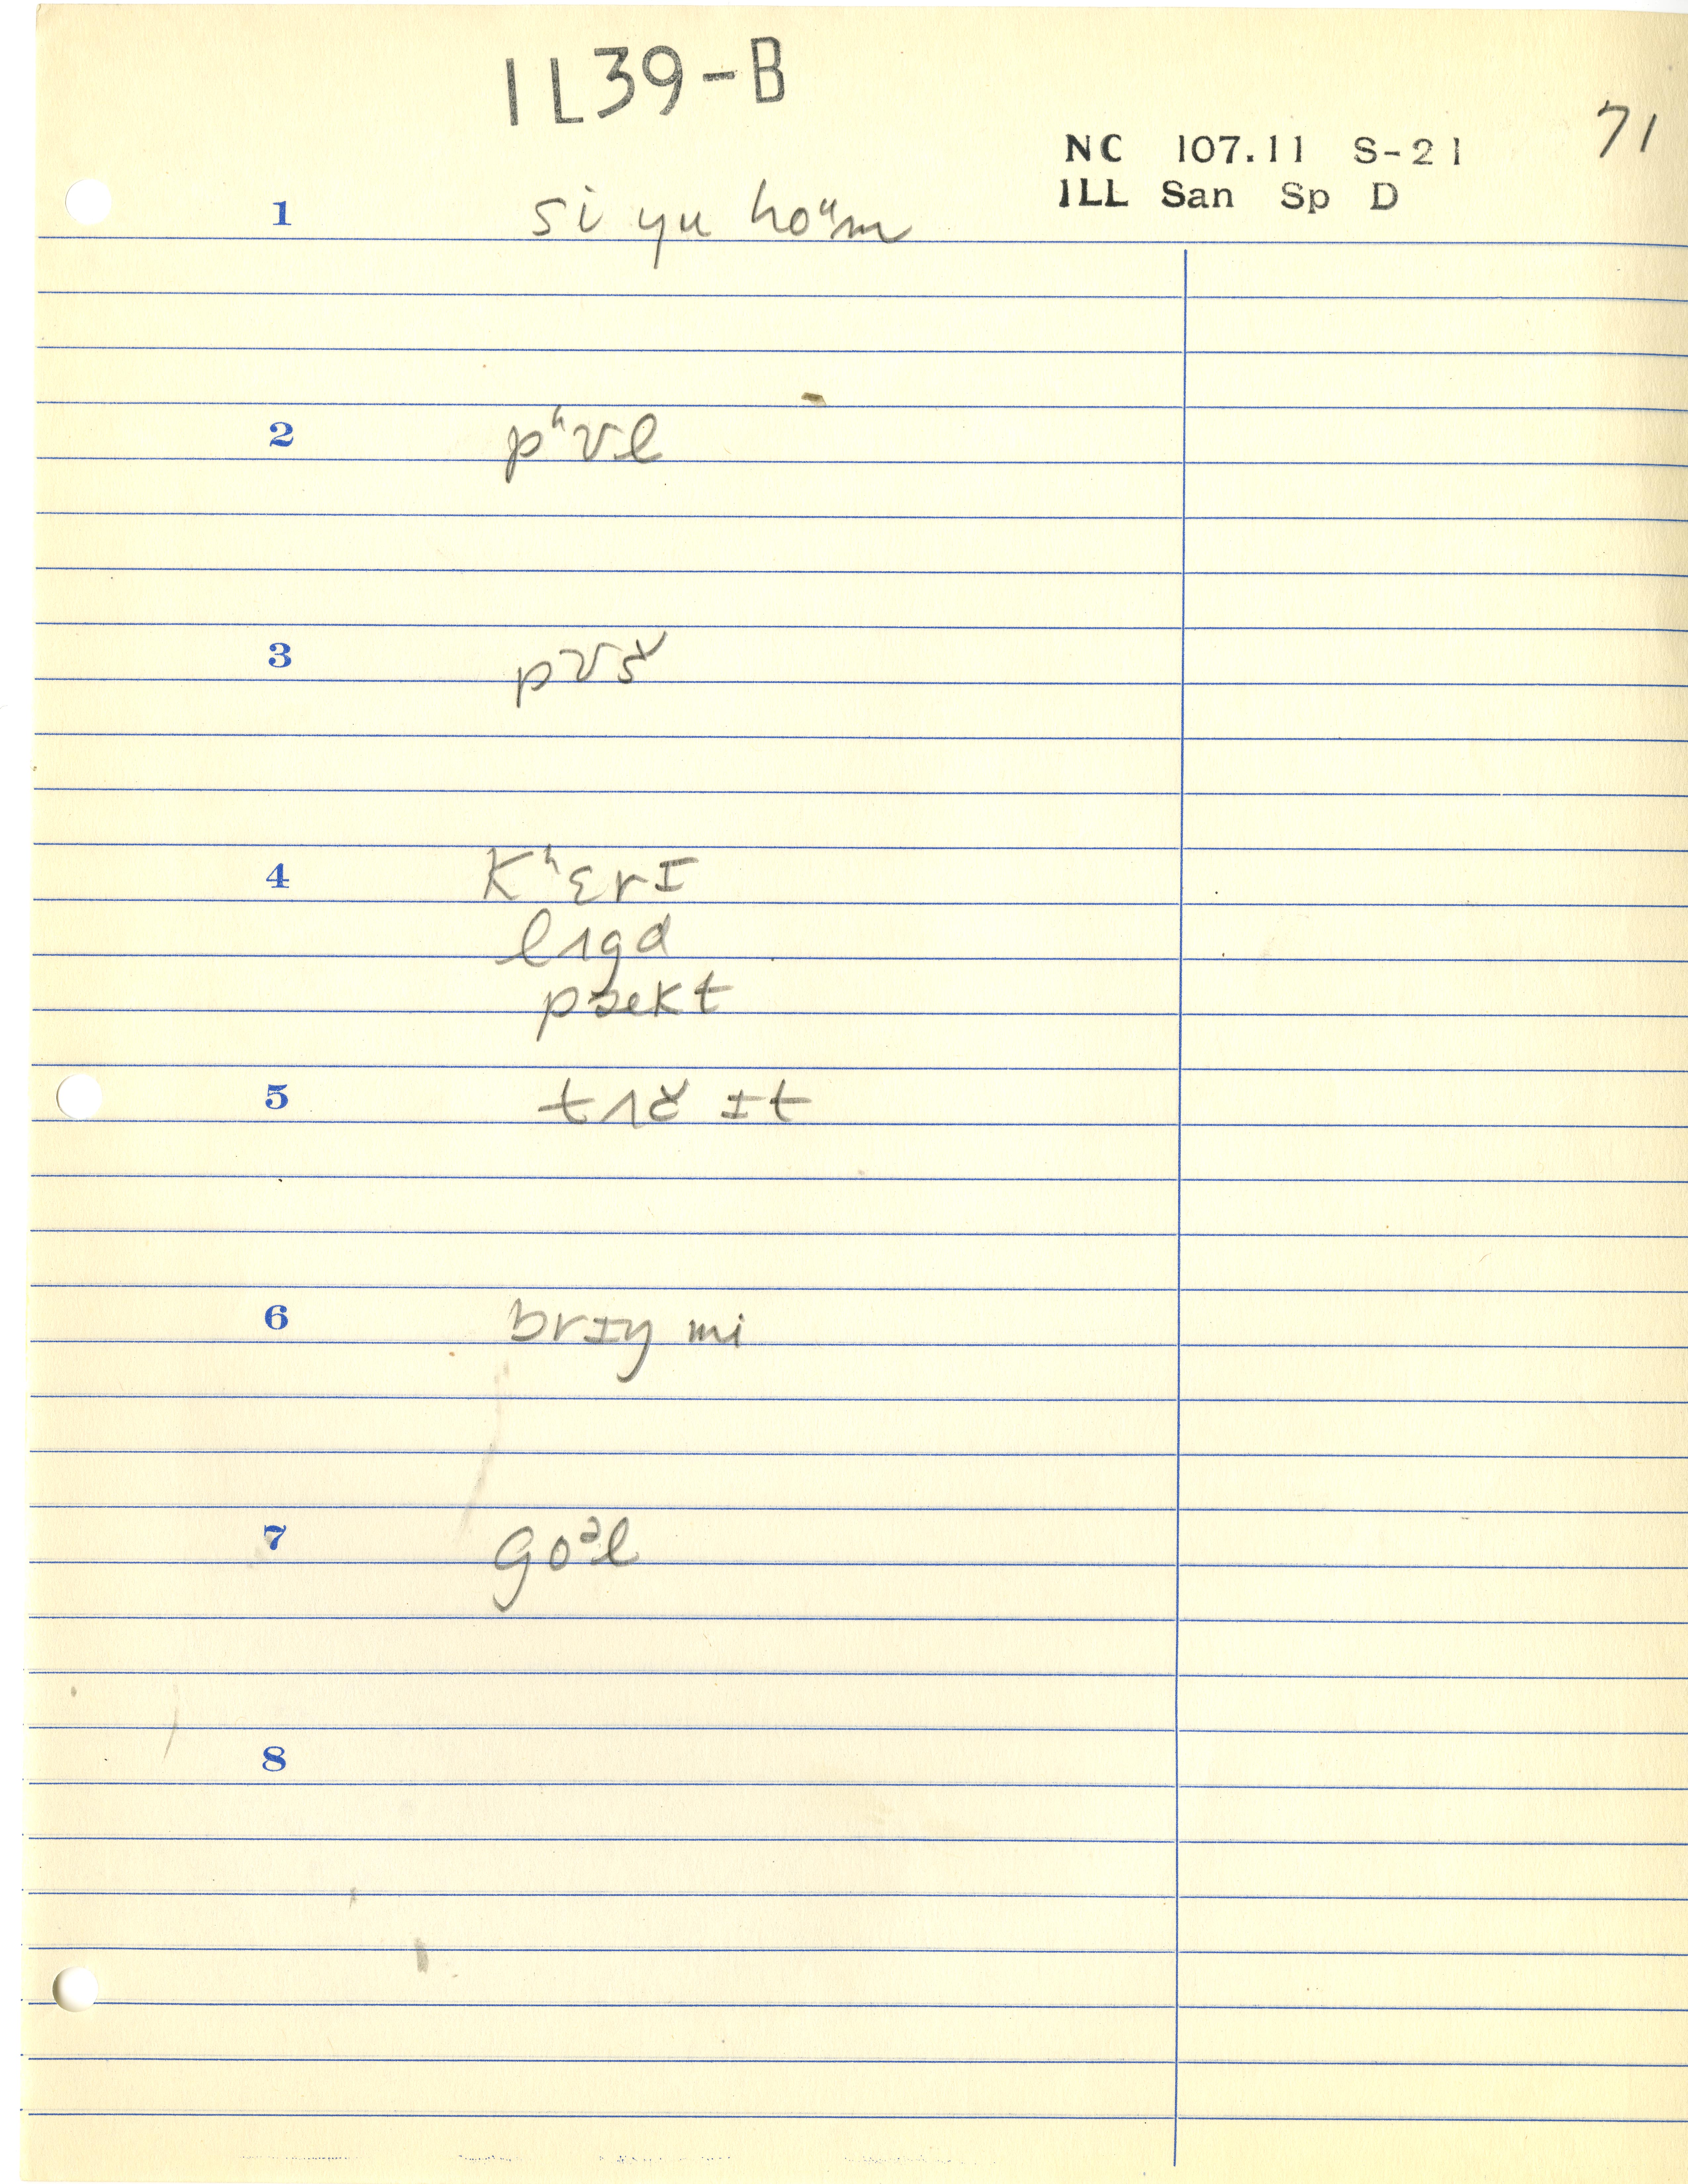 IL39-B
71
NC 107.11 S-21
ILL San Sp D
1 si yu hoᵘm
2 pʰʊl
3 pʊš
4 Kʰɛrɪ
lʌgd
pækt
5 tʌč ɪt
6 brɪŋ mi
7 goᵊl
8